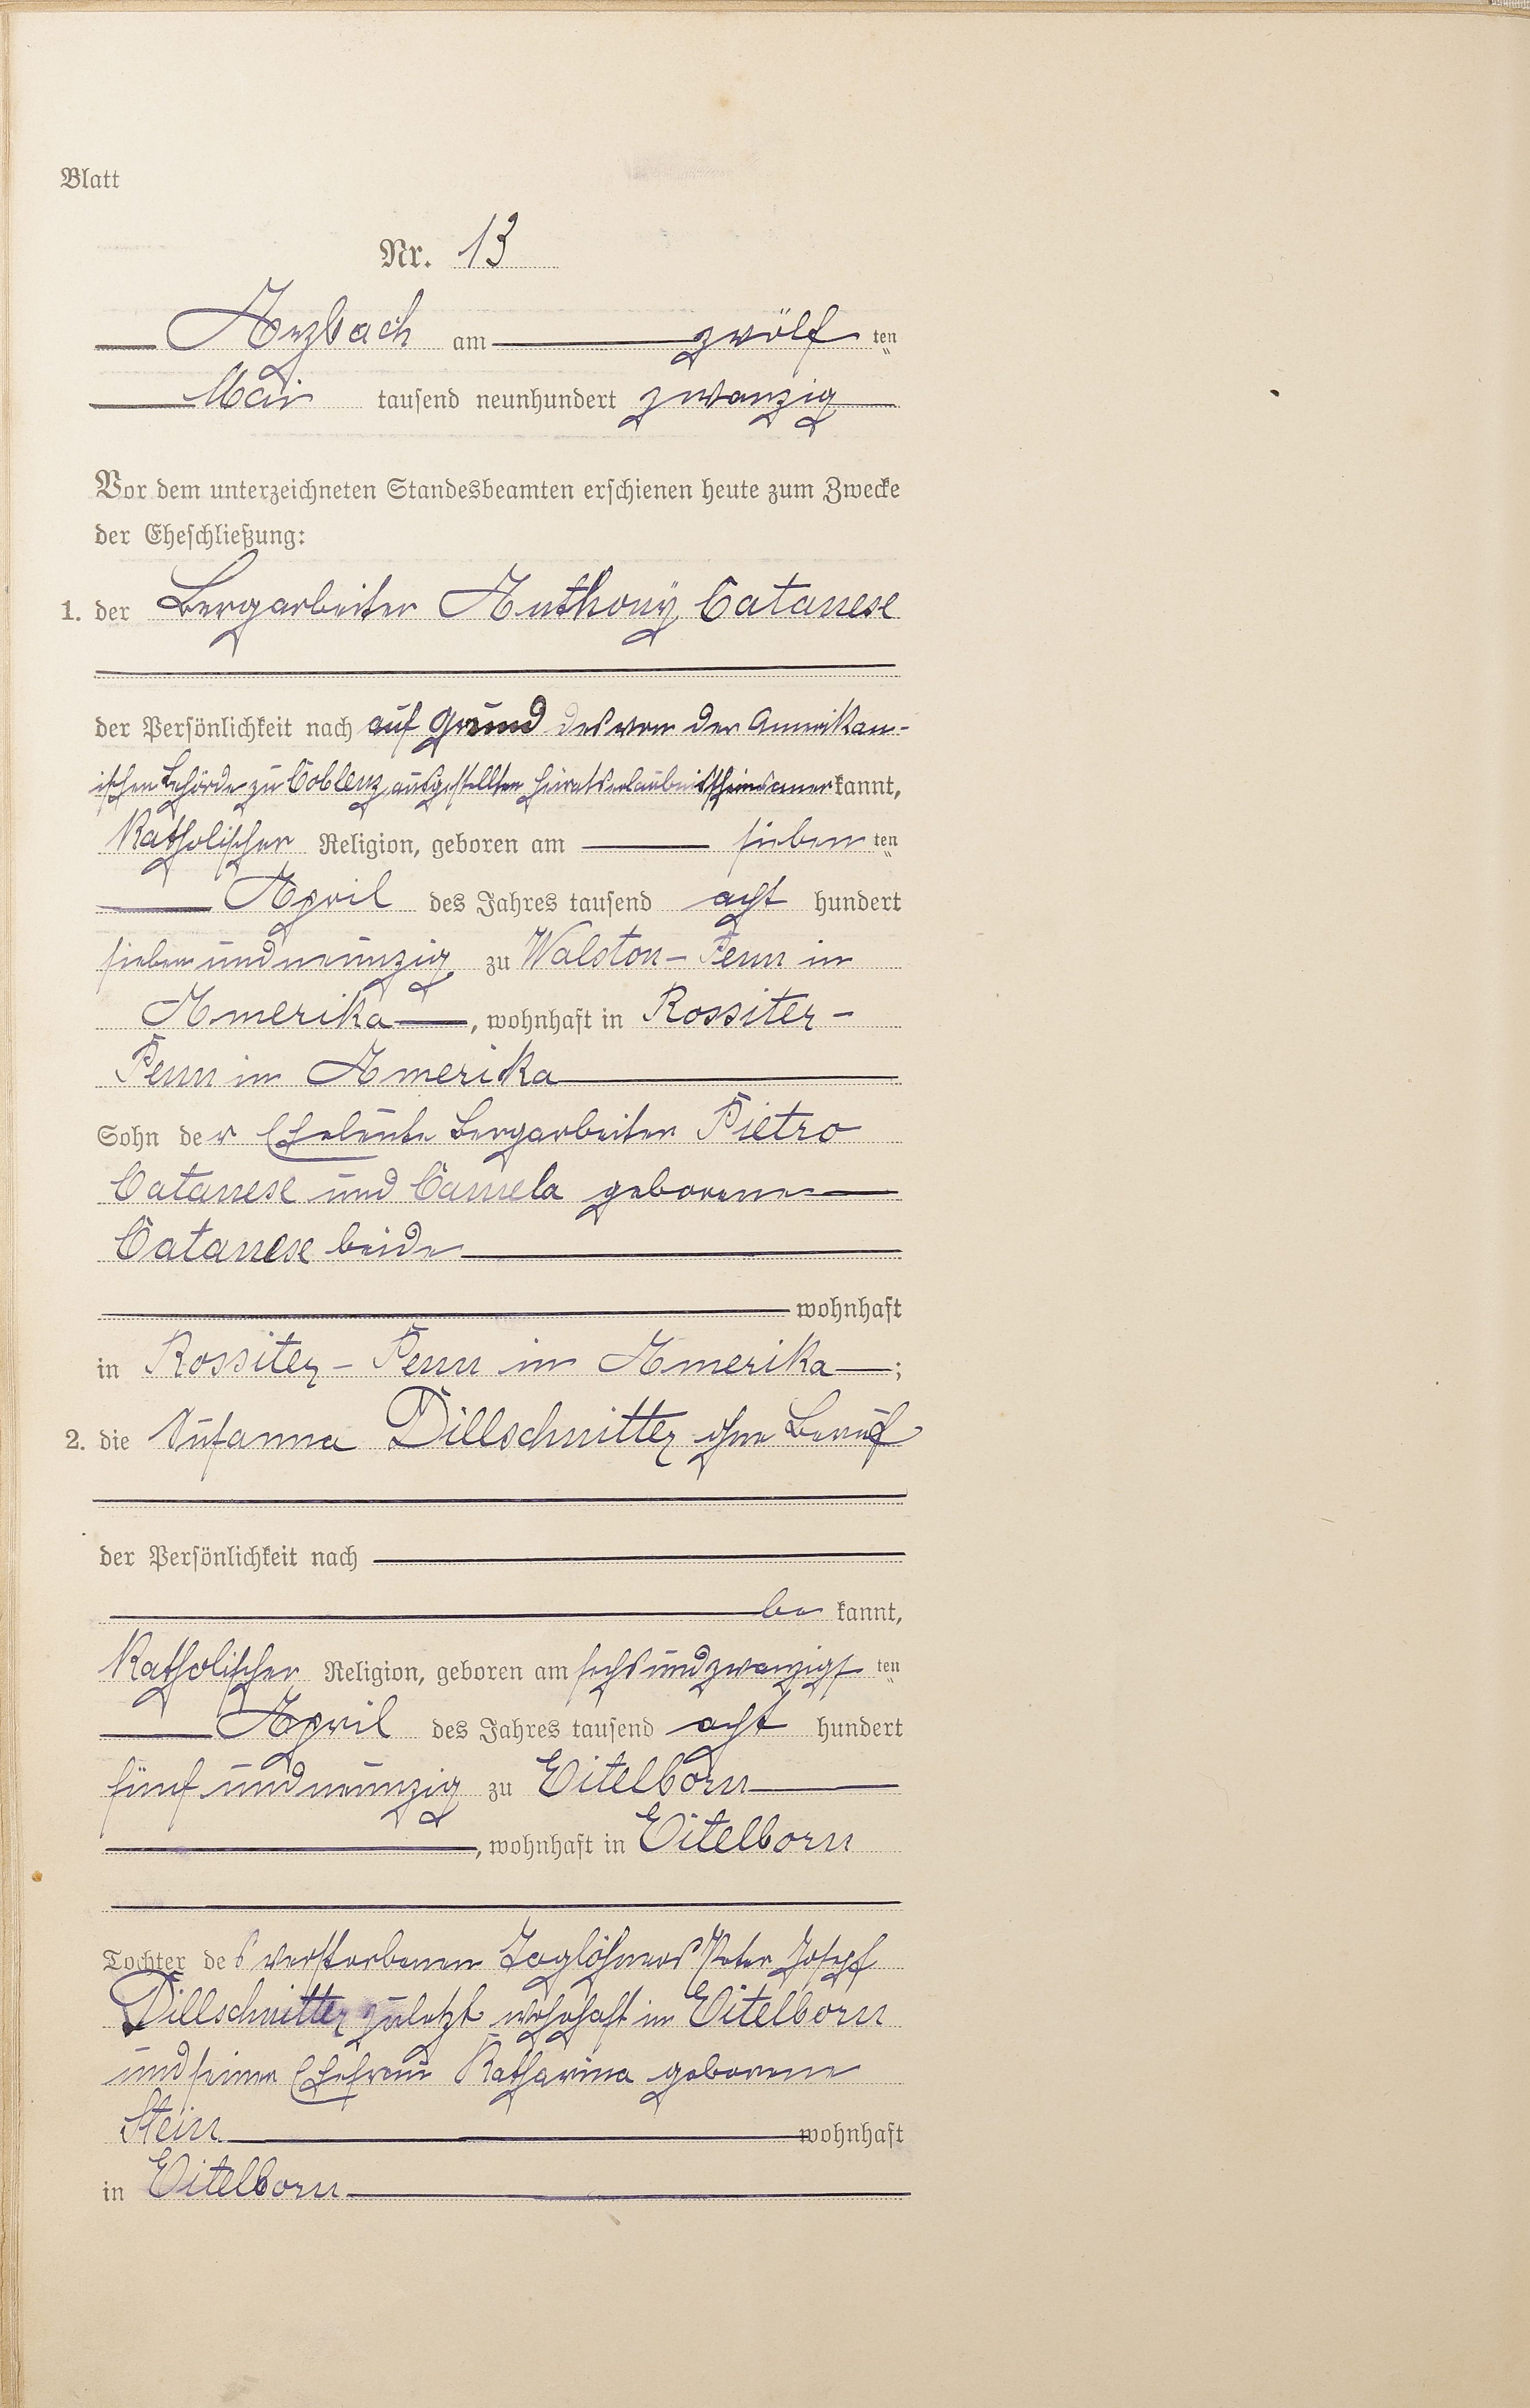 Blatt
Nr. 13
Arzbach am zwölf ten
Mai tausend neunhundert zwanzig
Vor dem unterzeichneten Standesbeamten erschienen heute zum Zwecke
der Eheschließung:
1. der Bergarbeiter Anthony Catanese
der Persönlichkeit nach auf Grund des von der Amerikan-
ischen Behörde zu Coblenz ausgestellten Heiratserlaubnisscheins anerkannt,
Katholischer Religion, geboren am sieben ten
April des Jahres tausend acht hundert
sieben und neunzig zu Walston - Penn in
Amerika, wohnhaft in Rossiter -
Penn in Amerika
Sohn der Eheleute Bergarbeiter Pietro
Catanese und Camela geborene
Catanese beide
wohnhaft
in Rossiter - Penn in Amerika;
2. die Susanna Dillschnitter ohne Beruf
der Persönlichkeit nach
be kannt,
Katholischer Religion, geboren am sechs und zwanzigs ten
April des Jahres tausend acht hundert
fünf und neunzig zu Eitelborn
, wohnhaft in Eitelborn
Tochter des verstorbenen Taglöhners Peter Josef
Dillschnitter zuletzt wohnhaft in Eitelborn
und seiner Ehefrau Katharina geborene
Stein wohnhaft
in Eitelborn